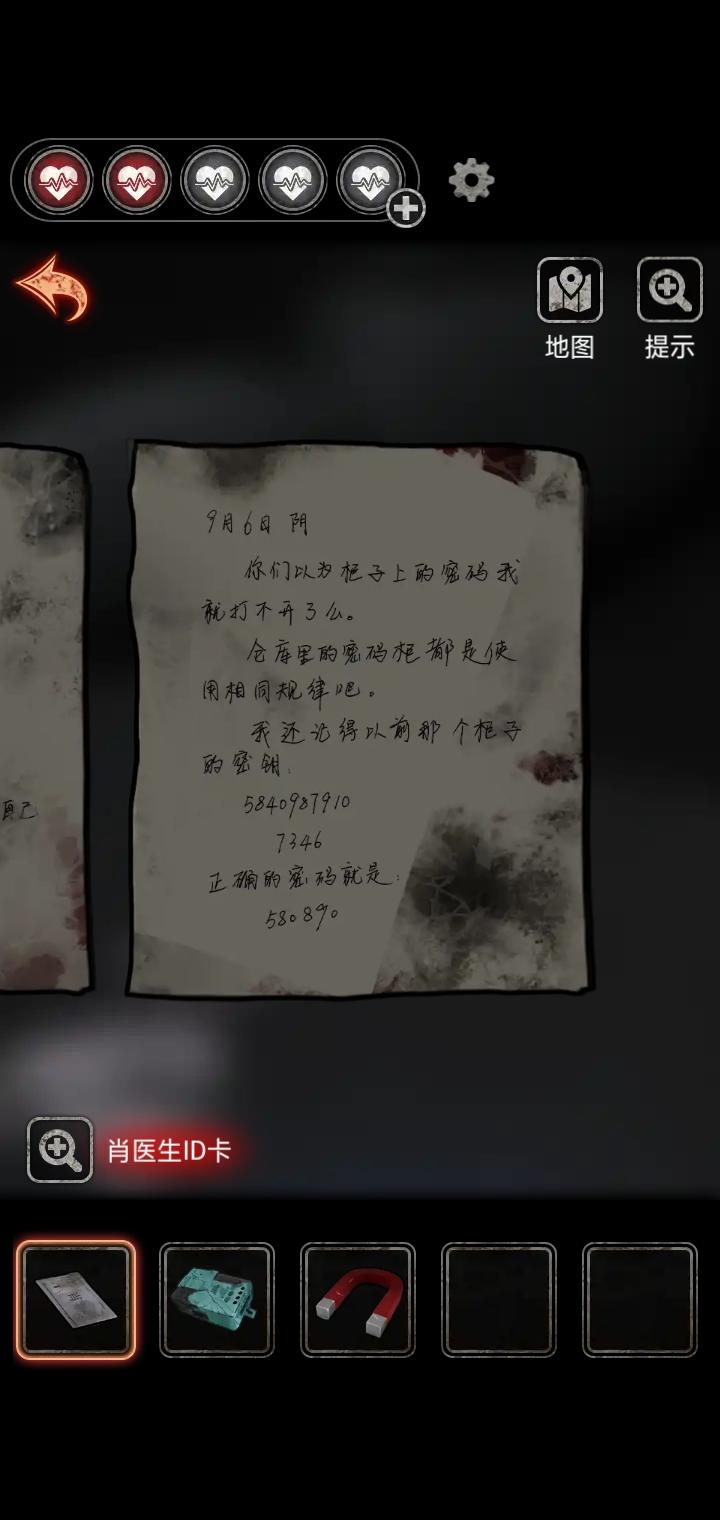 地图
提示
9月6日 阴
你们以为柜子上的密码我
就打不开了么。
仓库里的密码柜都是使
用相同规律吧。
我还记得以前那个柜子
的密钥:
5840987910
7346
正确的密码就是:
580890
自己
肖医生ID卡